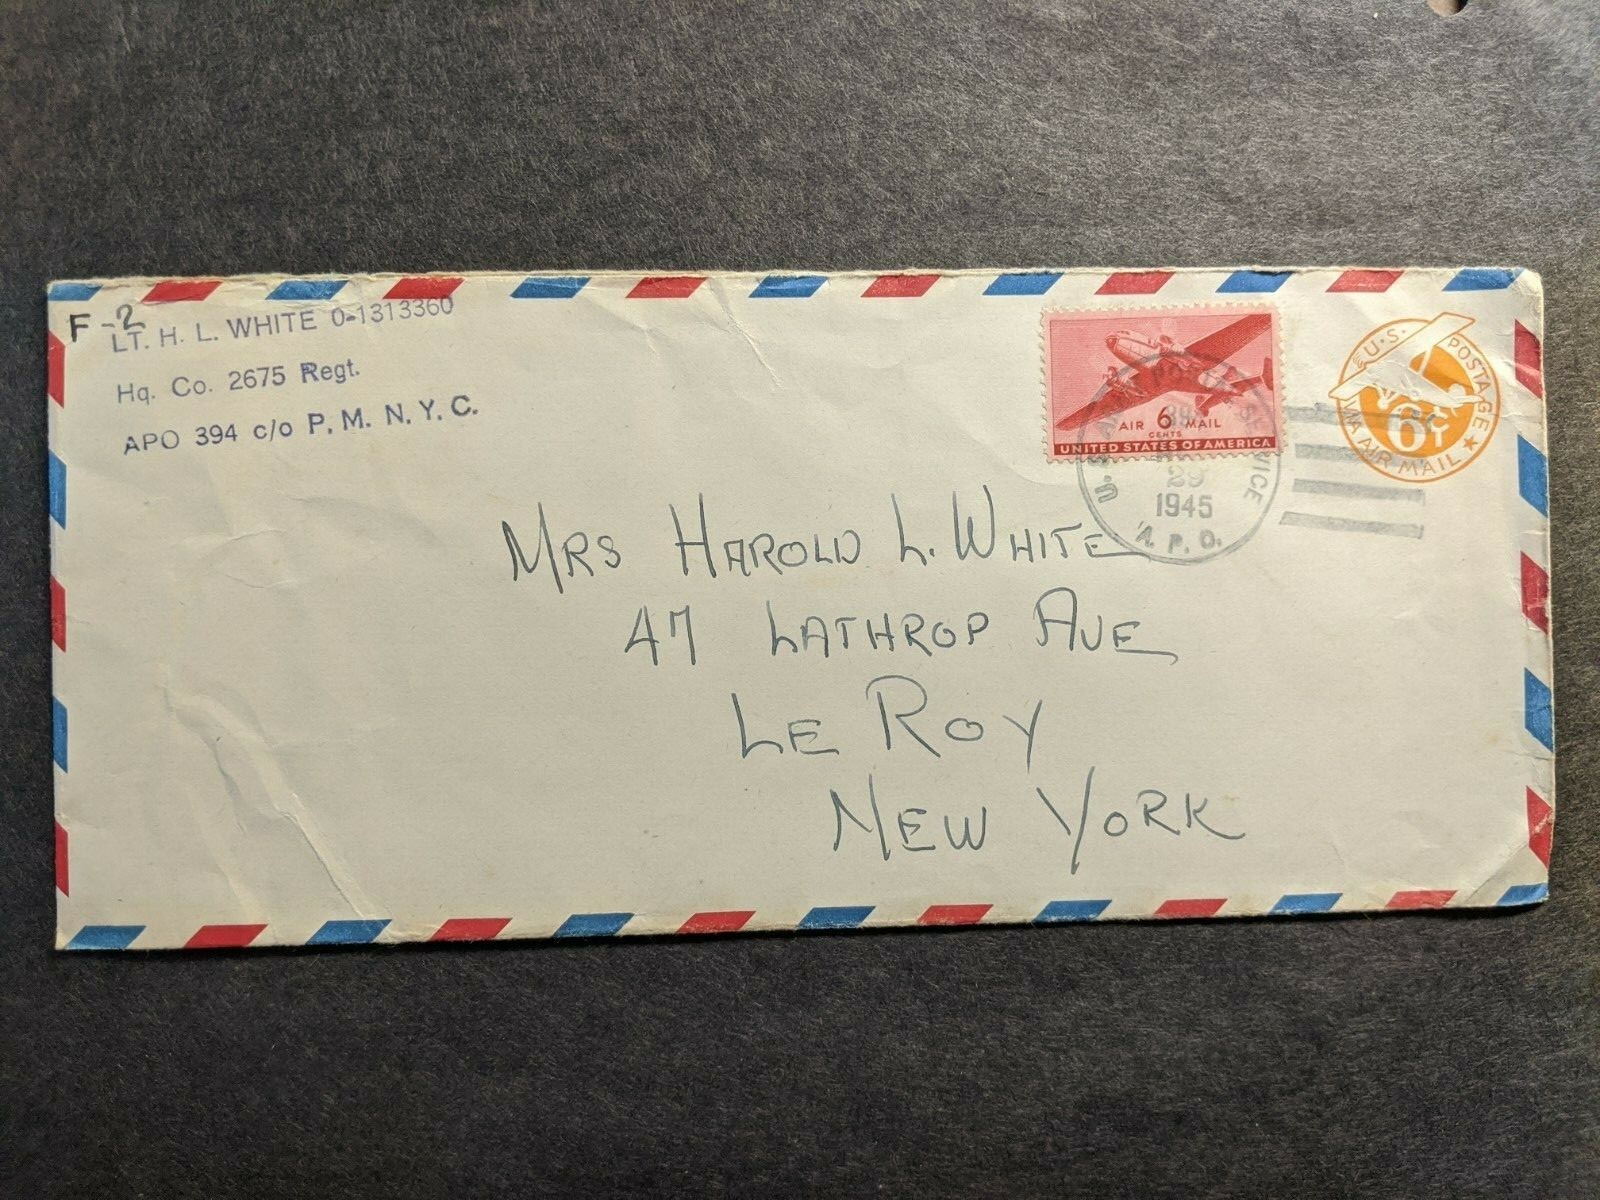 F-2
LT. H. L. WHITE O-1313360
Hq. Co. 2675 Regt.
APO 394 c/o P. M. N. Y. C.
AIR 6 MAIL
CENTS
UNITED STATES OF AMERICA
U.S. POSTAGE
6¢
VIA AIR MAIL
29
1945
A. P. O.
MRS HAROLD L. WHITE
47 LATHROP AVE
LE ROY
NEW YORK